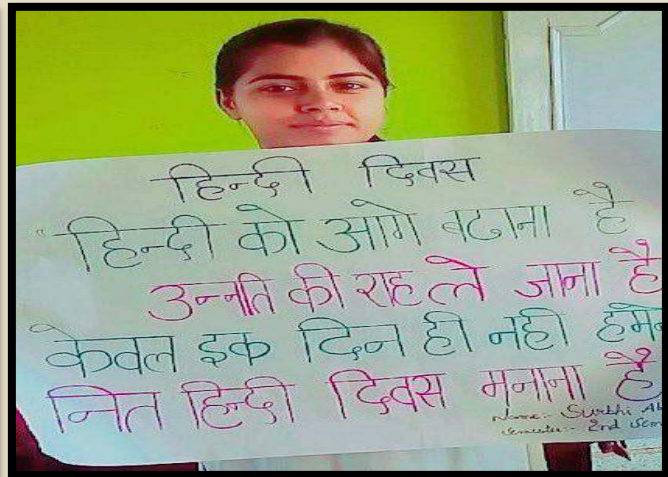 हिन्दी दिवस
"हिन्दी को आगे बढाना है
उन्नति की राह ले जाना है
केवल इक दिन ही नही हमे
नित हिन्दी दिवस मनाना है
Name:- Surbhi
Semester:- 2nd Sem